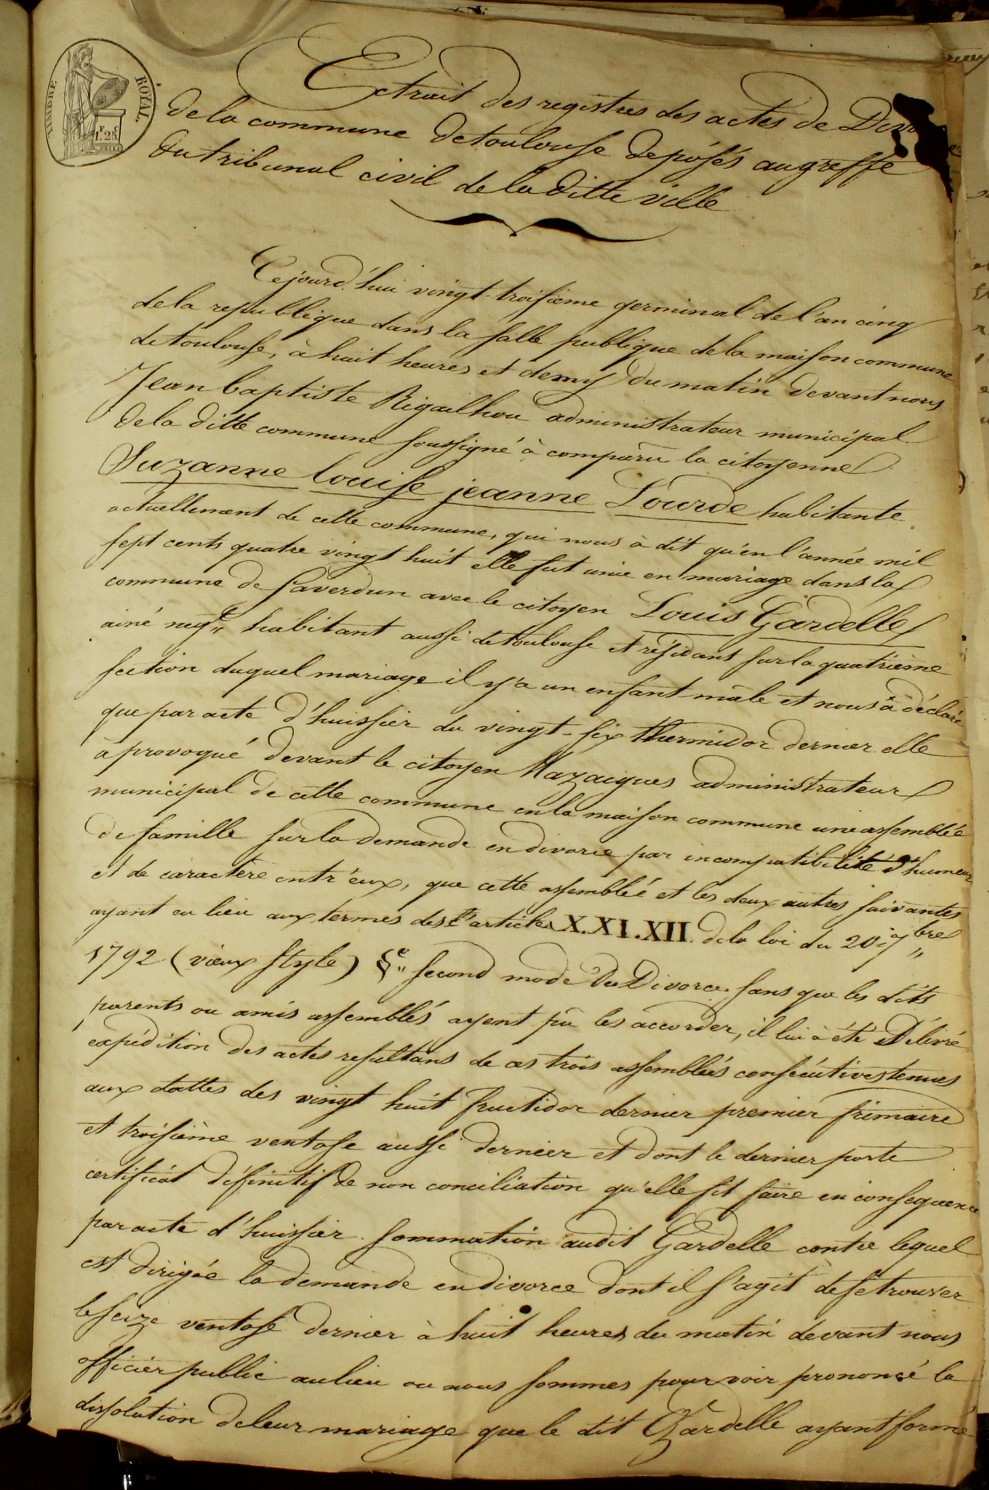 TIMBRE ROYAL
1f 25
Extrait des registres des actes de
de la commune de toulouse deposés au greffe
du tribunal civil de la ditte ville
Cejourd'hui vingt-troisième germinal de l'an cinq
de la republique dans la salle publique de la maison commune
de toulouse, à huit heures et demy du matin devant nous
Jean baptiste Rigailhou administrateur municipal
de la ditte commune soussigné à comparu la citoyenne
Suzanne louise jeanne Lourde habitante
actuellement de cette commune, qui nous à dit qu'en l'année mil
sept cents quatre vingt huit elle fut unie en mariage dans la
commune de Saverdun avec le citoyen Louis Gardelle
ainé negt habitant aussi de toulouse et résidant sur la quatrième
section duquel mariage il y a un enfant mâle et nous à déclaré
que par acte d'huissier du vingt-six thermidor dernier elle
à provoqué devant le citoyen Mazaygues administrateur
municipal de cette commune en la maison commune une assemblée
de famille sur la demande en divorce par incompatibilité d'humeur
et de caractère entr'eux, que cette assemblée et les deux autres suivantes
ayant eu lieu aux termes des articles X.XI.XII. de la loi du 20 7bre
1792 (vieux style) § second mode du Divorce, sans que les dits
parents ou amis assemblés ayent pû les accorder, il lui à été Délivré
expédition des actes resultans de ces trois assemblées consécutives tenues
aux dattes des vingt huit fructidor dernier premier frimaire
et troisième ventose aussi dernier et dont le dernier porte
certificat définitif de non conciliation qu'elle fit faire en consequence
par acte d'huissier sommation audit Gardelle contre lequel
est dirigée la demande en divorce dont il s'agit de se trouver
le seize ventose dernier à huit heures du matin devant nous
officier public au lieu ou nous sommes pour voir prononcé la
dissolution de leur mariage que le dit Gardelle ayant formé